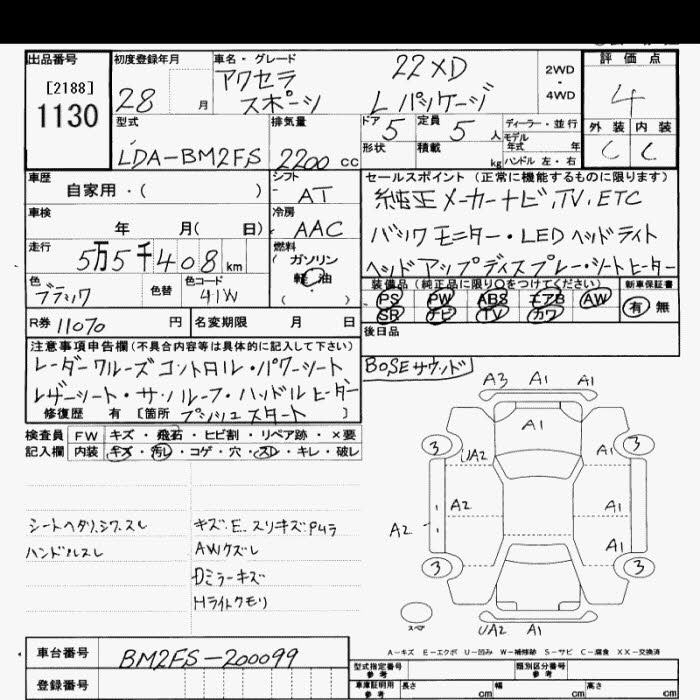 出品番号
[2188]
1130
初度登録年月
28 月
車名・グレード
アクセラ 22XD
スポーツ Lパッケージ
2WD
・
4WD
評価点
4
外装 内装
C C
型式
LDA-BM2FS
排気量
2200 cc
ドア 5
定員 5 人
形状
積載 kg
ディーラー・並行
モデル年式 年
ハンドル 左・右
車歴
自家用・( )
シフト
AT
車検
年 月( 日)
冷房
AAC
走行
5万5千408km
燃料
ガソリン
軽油
( )
色
ブラック
色替
色コード
41W
R券 11070 円
名変期限 月 日
セールスポイント (正常に機能するものに限ります)
純正メーカーナビ,TV,ETC
バックモニター・LEDヘッドライト
ヘッドアップディスプレー・シートヒーター
装備品 (純正品に限り○をつけてください)
PS PW ABS エアB AW
SR ナビ TV カワ
新車保証書
有 無
後日品
BOSEサウンド
注意事項申告欄(不具合内容等は具体的に記入して下さい)
レーダークルーズコントロル・パワーシート
レザーシート・サンルーフ・ハンドルヒーター
修復歴 有 [箇所 プッシュスタート ]
検査員 FW キズ・飛石・ヒビ割・リペア跡・×要
記入欄 内装 キズ・汚レ・コゲ・穴・スレ・キレ・破レ
シートヘタリ,シワ,スレ
ハンドルスレ
キズ・E スリキズP4ラ
AWクズレ
Dミラーキズ
Hライトクモリ
A3 A1 A1
A1
3 3
UA2 A1
A2 A1
A2
A1
3 3
スペア
UA2 A1
A－キズ E－エクボ U－凹み W－補修跡 S－サビ C－腐食 XX－交換済
車台番号
BM2FS-200099
登録番号
型式指定番号
参考
類別区分番号
参考
車庫証明用
参考
長さ cm
幅 cm
高さ cm